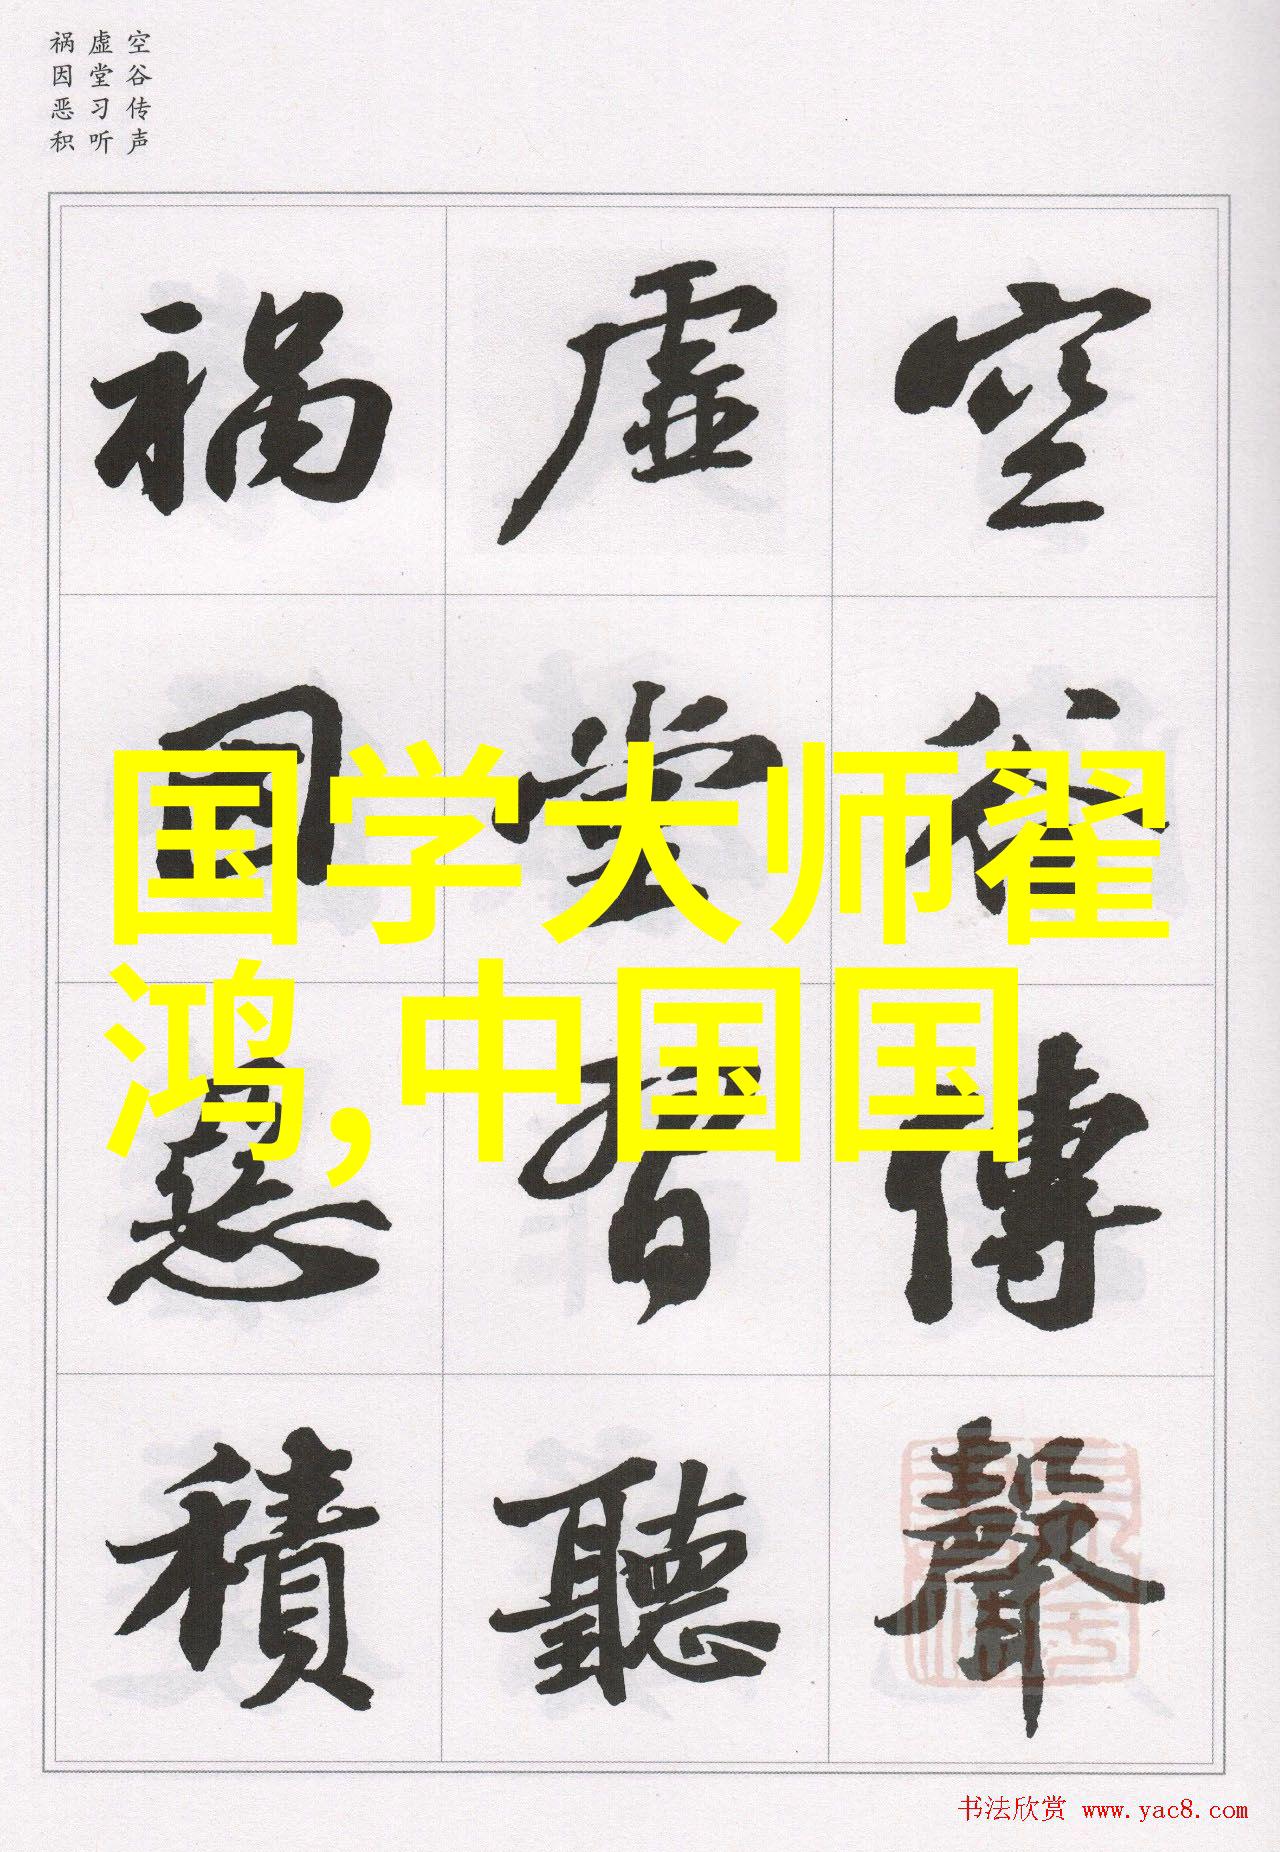 空谷传声
虚堂习听
祸因恶积
空谷傳聲
虛堂習聽
禍因惡積
国学大师翟
鸿,中国国
书法欣赏 www.yac8.com